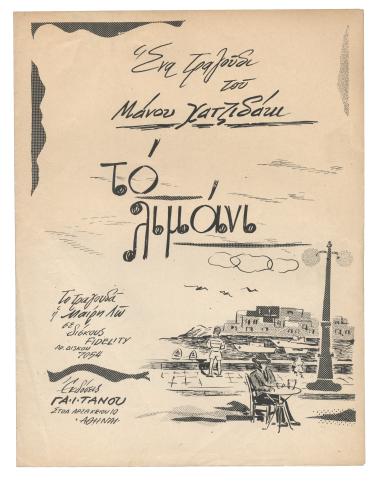 Ένα τραγούδι
τοῦ
Μάνου Χατζιδάκι
τό
λιμάνι
Τό τραγουδᾶ
ἡ Μαίρη Λῶ
σέ δίσκους
FIDELITY
ΑΡ. ΔΙΣΚΟΥ
7054
Ἐκδόσεις
ΓΑ·Ι·ΤΑΝΟΥ
ΣΤΟΑ ΑΡΣΑΚΕΙΟΥ 10
·ΑΘΗΝΑΙ·